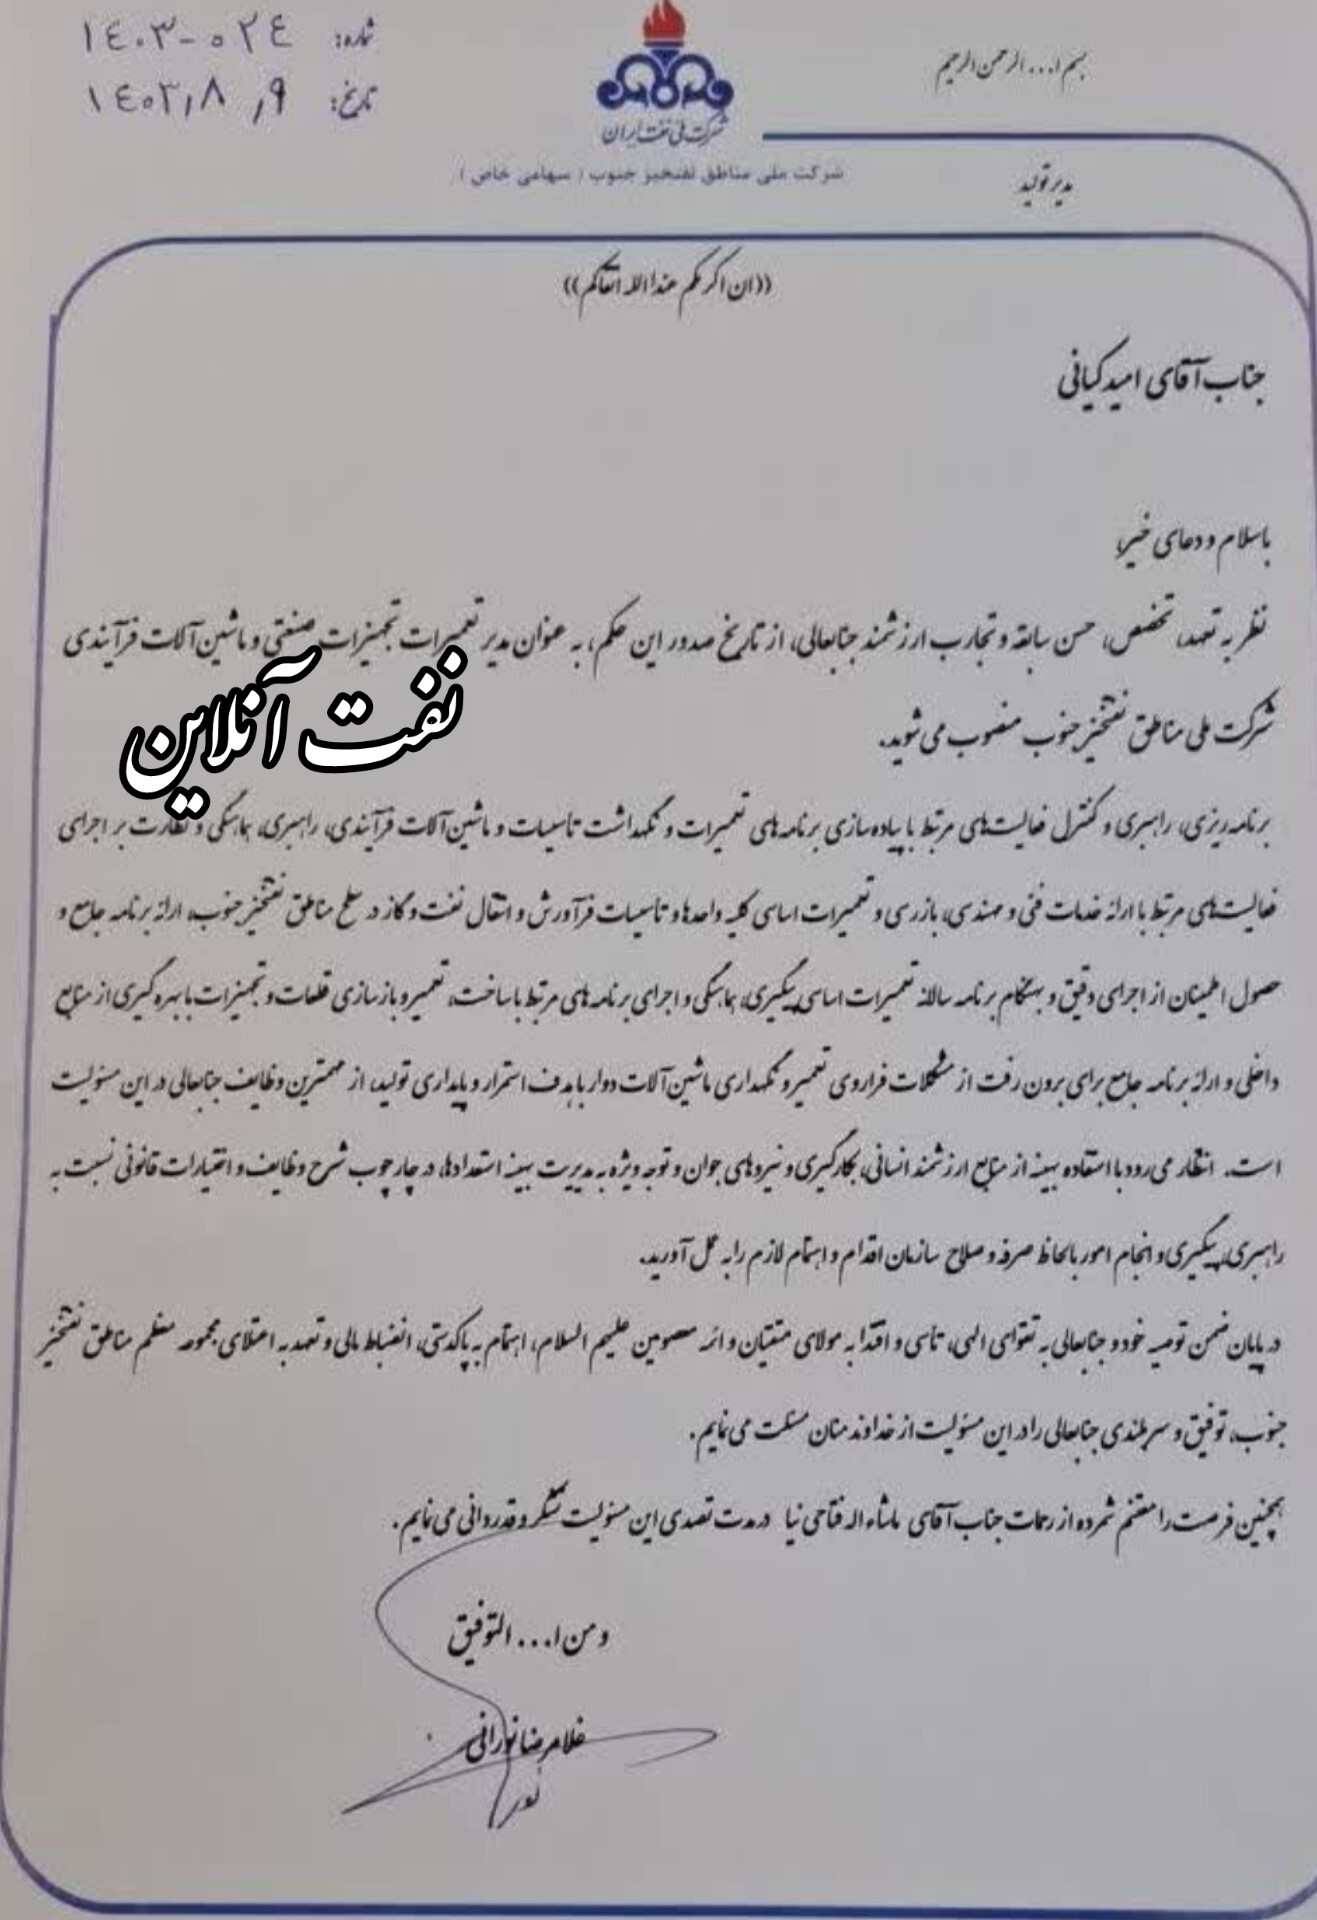 بسم ا... الرحمن الرحیم
شماره: ۱۴۰۳-۰۲۴
تاریخ: ۱۴۰۳٫۸٫۹
شرکت ملی نفت ایران
شرکت ملی مناطق نفتخیز جنوب ( سهامی خاص )
مدیر تولید
((ان اکرمکم عندالله اتقاکم))
جناب آقای امید کیانی
باسلام و دعای خیر،
نظر به تعهد، تخصص، حسن سابقه و تجارب ارزشمند جنابعالی، از تاریخ صدور این حکم، به عنوان مدیر تعمیرات تجهیزات صنعتی و ماشین آلات فرآیندی
شرکت ملی مناطق نفتخیز جنوب منصوب می شوید.
نفت آنلاین
برنامه ریزی، راهبری و کنترل فعالیت های مرتبط با پیاده سازی برنامه های تعمیرات و نگهداشت تاسیسات و ماشین آلات فرآیندی، راهبری، هماهنگی و نظارت بر اجرای
فعالیت های مرتبط با ارائه خدمات فنی و مهندسی، بازرسی و تعمیرات اساسی کلیه واحدها و تاسیسات فرآورش و انتقال نفت و گاز در سطح مناطق نفتخیز جنوب، ارائه برنامه جامع و
حصول اطمینان از اجرای دقیق و بهنگام برنامه سالانه تعمیرات اساسی، پیگیری، هماهنگی و اجرای برنامه های مرتبط با ساخت، تعمیر و بازسازی قطعات و تجهیزات با بهره گیری از منابع
داخلی و ارائه برنامه جامع برای برون رفت از مشکلات فراروی تعمیر و نگهداری ماشین آلات دوار با هدف استمرار و پایداری تولید، از مهمترین وظایف جنابعالی در این مسئولیت
است. انتظار می رود با استفاده بهینه از منابع ارزشمند انسانی، بکارگیری و نیروهای جوان و توجه ویژه به مدیریت بهینه استعدادها، در چارچوب شرح وظایف و اختیارات قانونی نسبت به
راهبری، پیگیری و انجام امور با لحاظ صرفه و صلاح سازمان اقدام و اهتمام لازم را به عمل آورید.
در پایان ضمن توصیه خود و جنابعالی به تقوای الهی، تاسی و اقتدا به مولای متقیان و ائمه معصومین علیهم السلام، اهتمام به پاکدستی، انضباط مالی و تعهد به اعتلای مجموعه معظم مناطق نفتخیز
جنوب، توفیق و سربلندی جنابعالی را در این مسئولیت از خداوند منان مسئلت می نمایم.
همچنین فرصت را مغتنم شمرده از زحمات جناب آقای ماشاءاله فتاحی نیا در مدت تصدی این مسئولیت تشکر و قدردانی می نمایم.
و من ا... التوفیق
غلامرضا نورانی